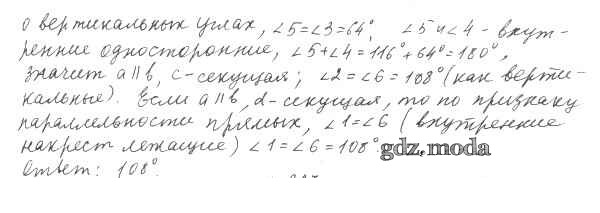 о вертикальных углах, ∠5=∠3=64°, ∠5 и ∠4 - внут-
ренние односторонние, ∠5+∠4=116°+64°=180°,
значит a∥b, c-секущая; ∠2=∠6=108° (как верти-
кальные). Если a∥b, d-секущая, то по признаку
параллельности прямых, ∠1=∠6 (внутренние
накрест лежащие) ∠1=∠6=108°.
gdz.moda
Ответ: 108°.